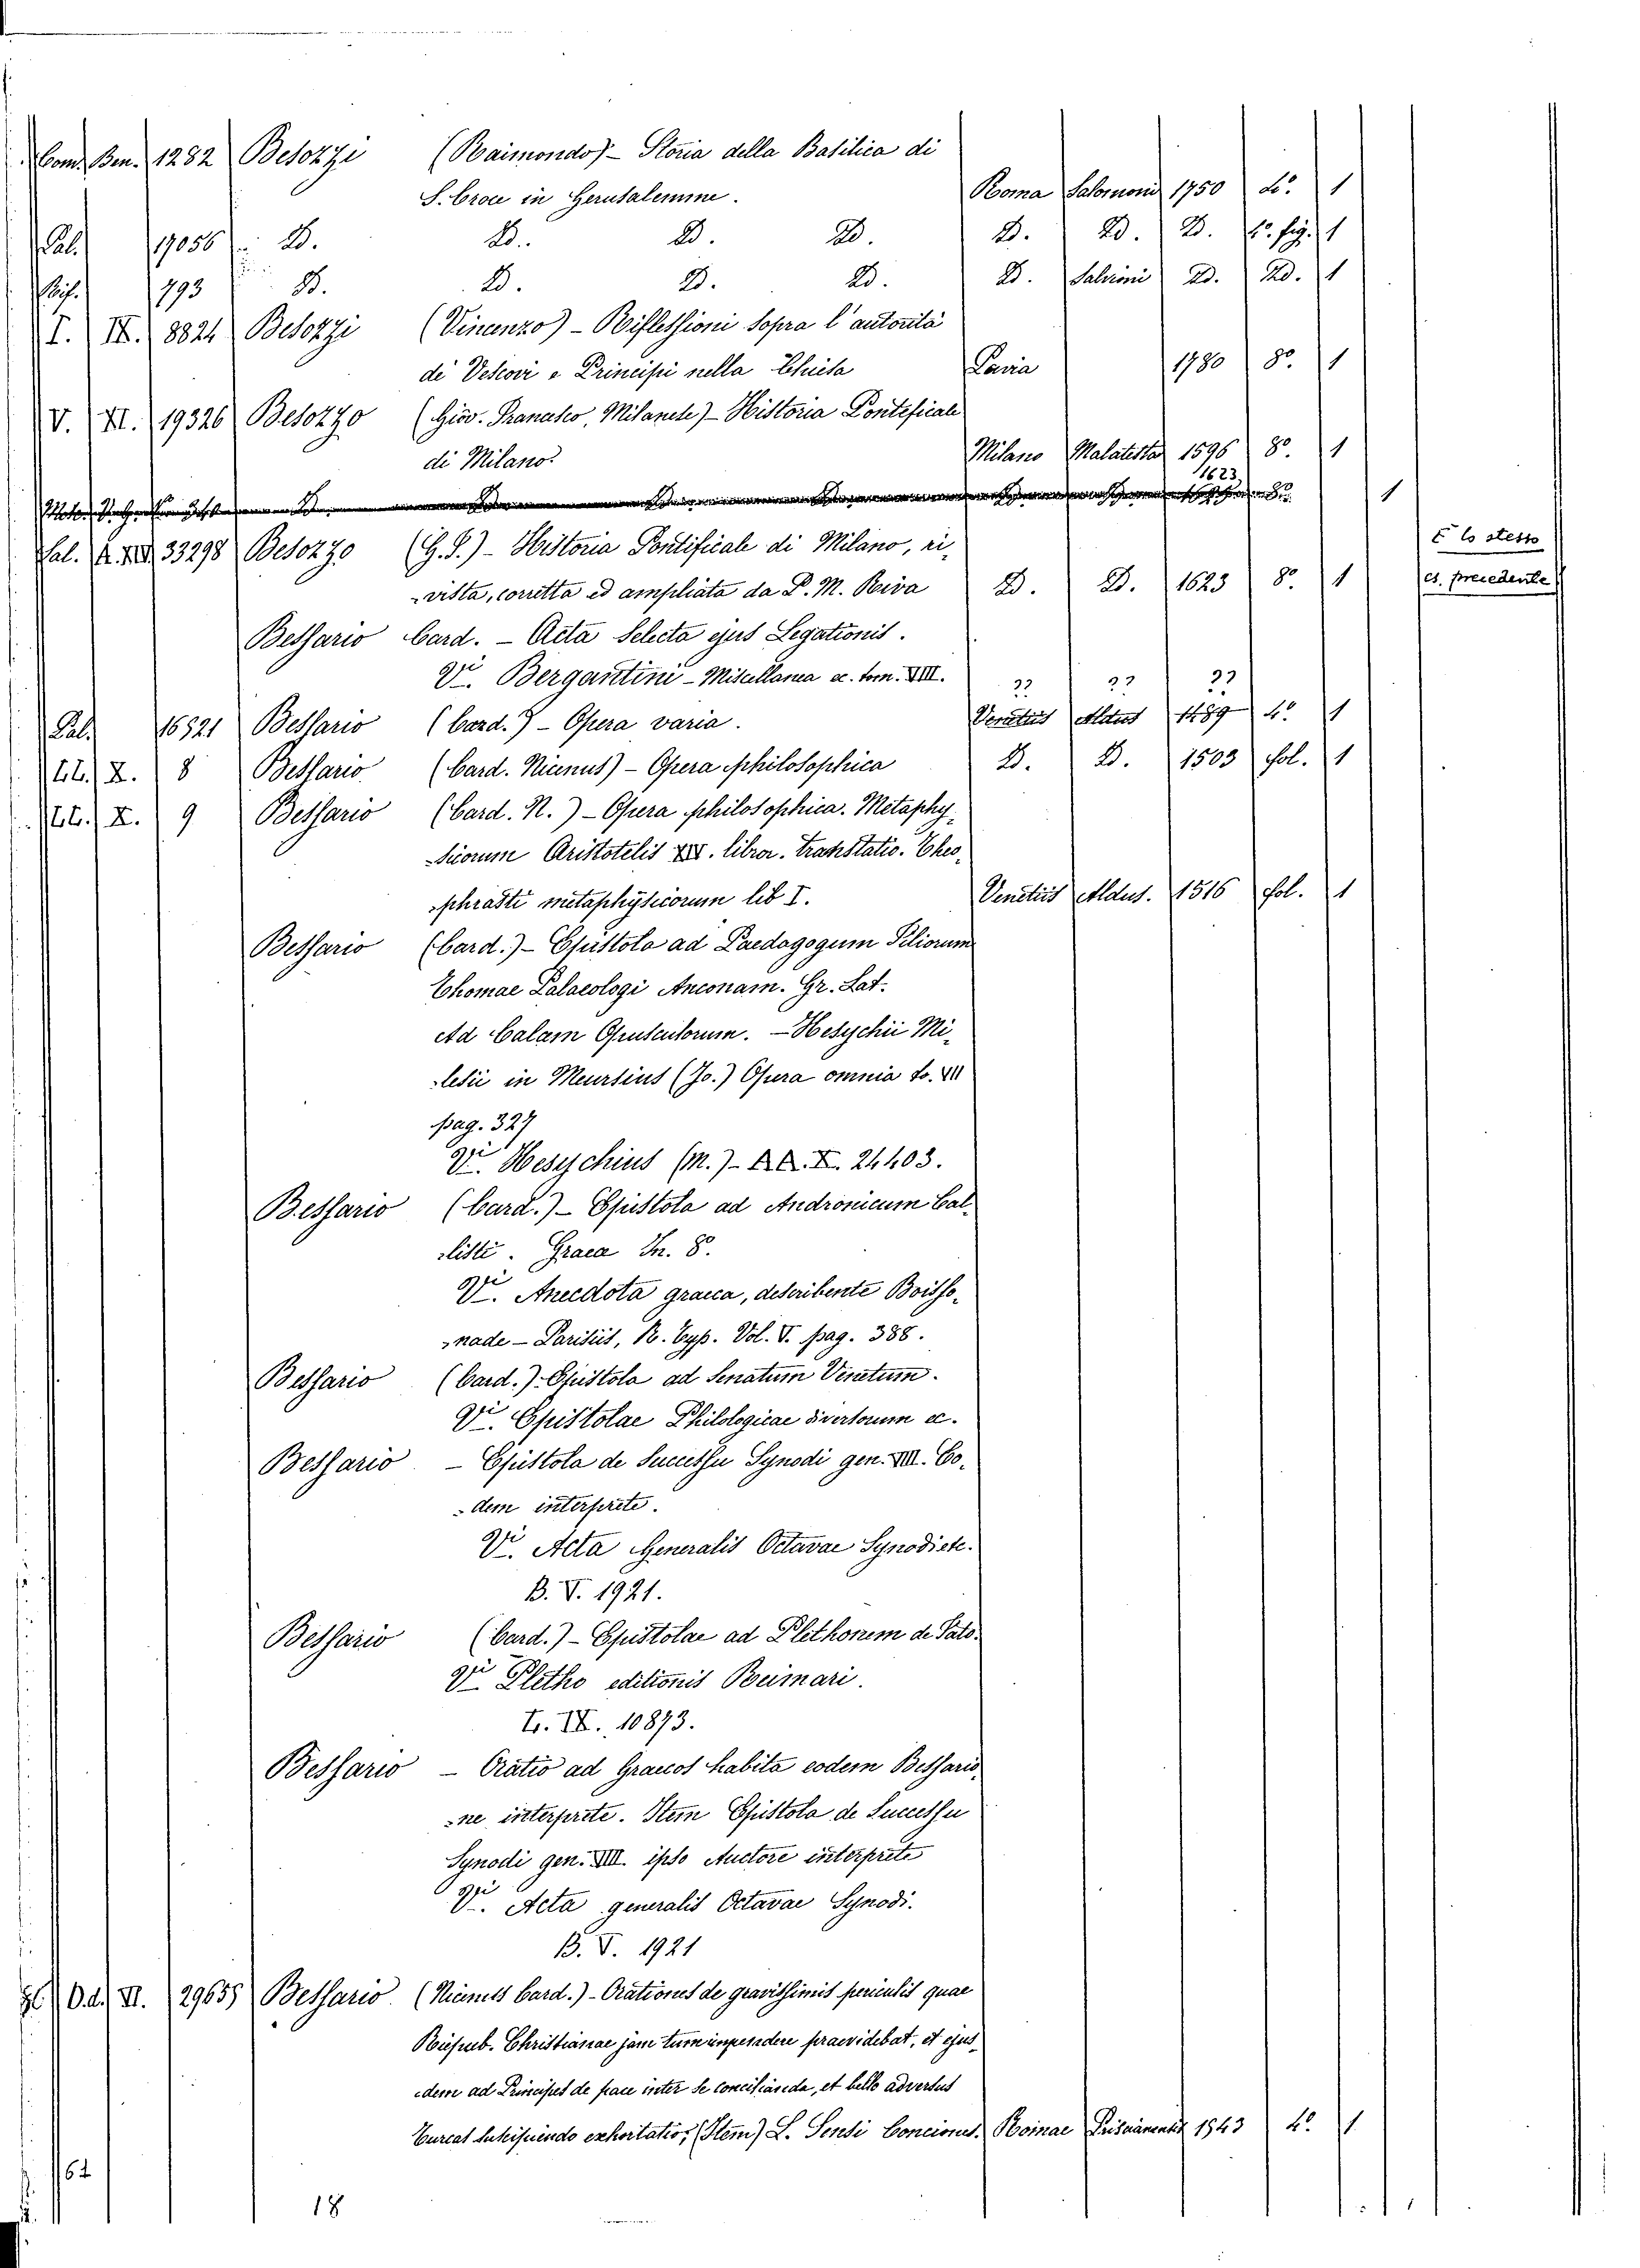 Com. Ben. 1282 Besozzi (Raimondo) - Storia della Basilica di
S. Croce in Gerusalemme. Roma Salomoni 1750 4.º 1
Pal. 17056 D. D. D. D. D. D. D. 4.º fig. 1
793 D. D. D. D. D. Salvioni D. D. 1
I. IX. 8824 Besozzi (Vincenzo) - Riflessioni sopra l'autorità
di Vescovi e Principi nella Chiesa Pavia 1780 8.º 1
V. XI. 19326 Besozzo (Giov. Francesco, Milanese) - Historia Pontificale
di Milano. Milano Malatesta 1596 8.º 1
1623
1
Pal. 33298 Besozzo (G. F.) - Historia Pontificale di Milano, ri-
-vista, corretta ed ampliata da P. M. Riva D. D. 1623 8.º 1
È lo stesso
es. precedente
Bessario Card. - Acta Selecta ejus Legationis.
Vi. Bergantini - Miscellanea ec. tom. VIII. ?? ?? ??
Pal. 16521 Bessario (Card.) - Opera varia. Venetiis Aldus 1489 4.º 1
LL. X. 8 Bessario (Card. Nicenus) - Opera philosophica D. D. 1503 fol. 1
LL. X. 9 Bessario (Card. N.) - Opera philosophica. Metaphy-
-sicorum Aristotelis XIV. libror. translatio. Theo-
-phrasti metaphysicorum lib I. Venetiis Aldus. 1516 fol. 1
Bessario (Card.) - Epistola ad Paedagogum Filiorum
Thomae Palaeologi Anconam. Gr. Lat.
Ad Calam Opusculorum. - Hesychii Mi-
-lesii in Meursius (Jo.) Opera omnia to. VII
pag. 327
Vi. Hesychius (M.) - AA. X. 24403.
Bessario (Card.) - Epistola ad Andronicum Cal-
-listi. Graeca In. 8.º
Vi. Anecdota graeca, describente Boisso-
-nade - Parisiis, R. Typ. Vol. V. pag. 388.
Bessario (Card.) - Epistola ad Senatum Venetum.
Vi. Epistolae Philologicae diversorum ec.
Bessario - Epistola de Successu Synodi gen. VIII. Eo-
-dem interprete.
Vi. Acta Generalis Octavae Synodi etc.
B. V. 1921.
Bessario (Card.) - Epistolae ad Plethonem de Fato.
Vi Pletho editionis Reimari.
T. IX. 10873.
Bessario - Oratio ad Graecos habita eodem Bessario-
-ne interprete. Item Epistola de Successu
Synodi gen. VIII. ipso Auctore interprete
Vi. Acta generalis Octavae Synodi.
B. V. 1921
O.d. VI. 29655 Bessario (Nicenus Card.) - Orationes de gravissimis periculis quae
Reipub. Christianae jam tum inpendere praevidebat, et ejus-
-dem ad Principes de pace inter se concilianda, et bello adversus
Turcas suscipiendo exhortatio, (Item) L. Sensi Conciones. Romae Priscianensis 1543 4.º 1
62
18